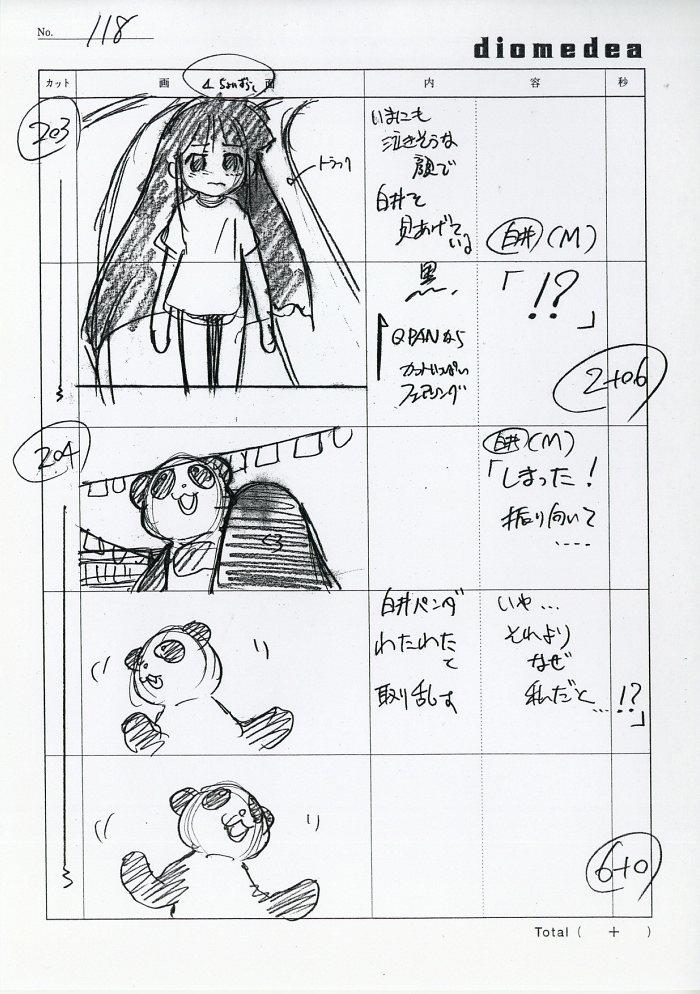 No. 118
diomedea
カット 画 面 内 容 秒
203
トラック
いまにも
泣きそうな
顔で
白井を
見あげて
いる
白井(M)
「!?」
黒、
Q.PANから
フェアリング
2+06
204
白井(M)
「しまった!
振り向いて
....
白井パンダ
わたわた
と
取り乱す
いや...
それより
なぜ
私だと...!?」
6+0
Total ( + )